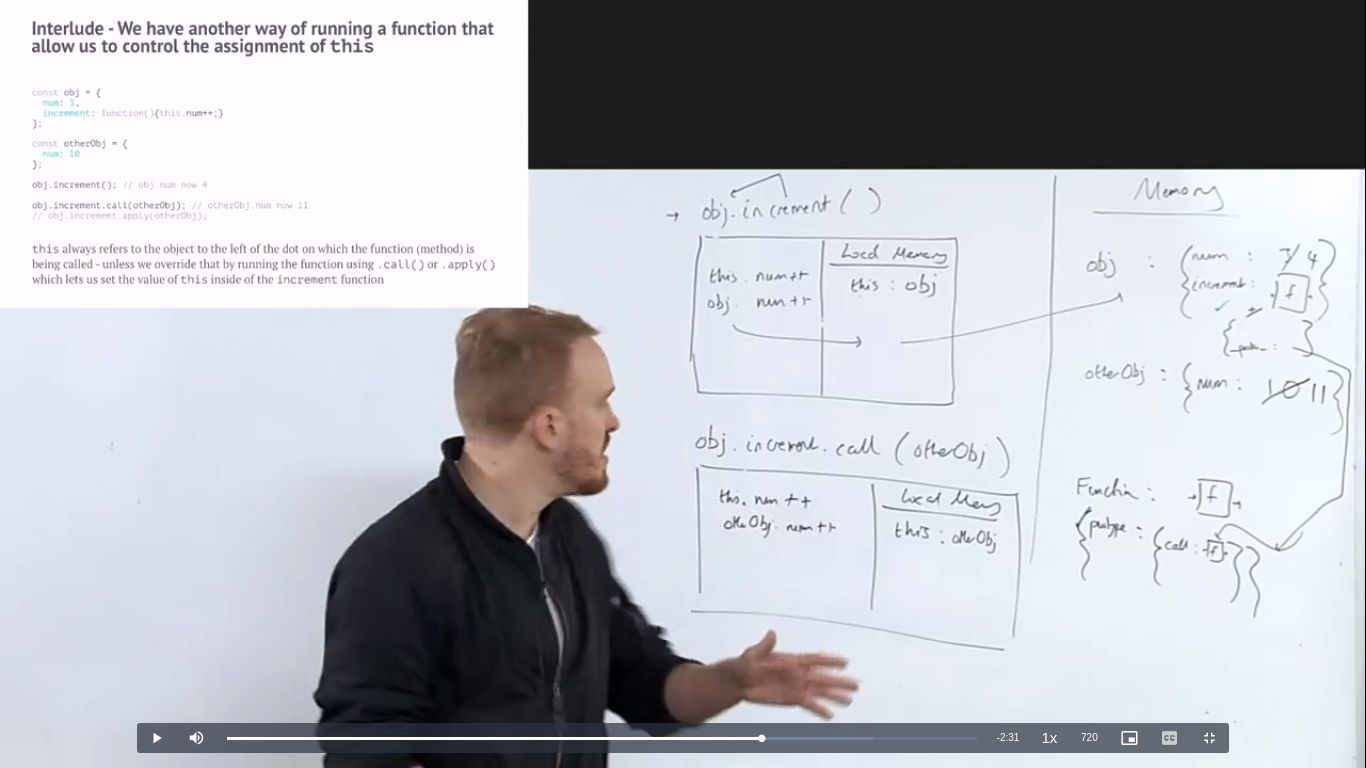 Interlude - We have another way of running a function that
allow us to control the assignment of this
const obj = {
num: 3,
increment: function(){this.num++;}
};
const otherObj = {
num: 10
};
obj.increment(); // obj.num now 4
obj.increment.call(otherObj); // otherObj.num now 11
// obj.increment.apply(otherObj);
this always refers to the object to the left of the dot on which the function (method) is
being called - unless we override that by running the function using .call() or .apply()
which lets us set the value of this inside of the increment function
→ obj.increment ( )
Local Memory
this . num++
this : obj
obj. num++
obj. increment. call (otherObj)
Local Memory
this. num ++
otherObj. num++
this : otherObj
Memory
obj : { num : 3/ 4
increment: f }
otherObj : { num : 10 11 }
Function : f
{ call : f } }
-2:31
1x
720
CC